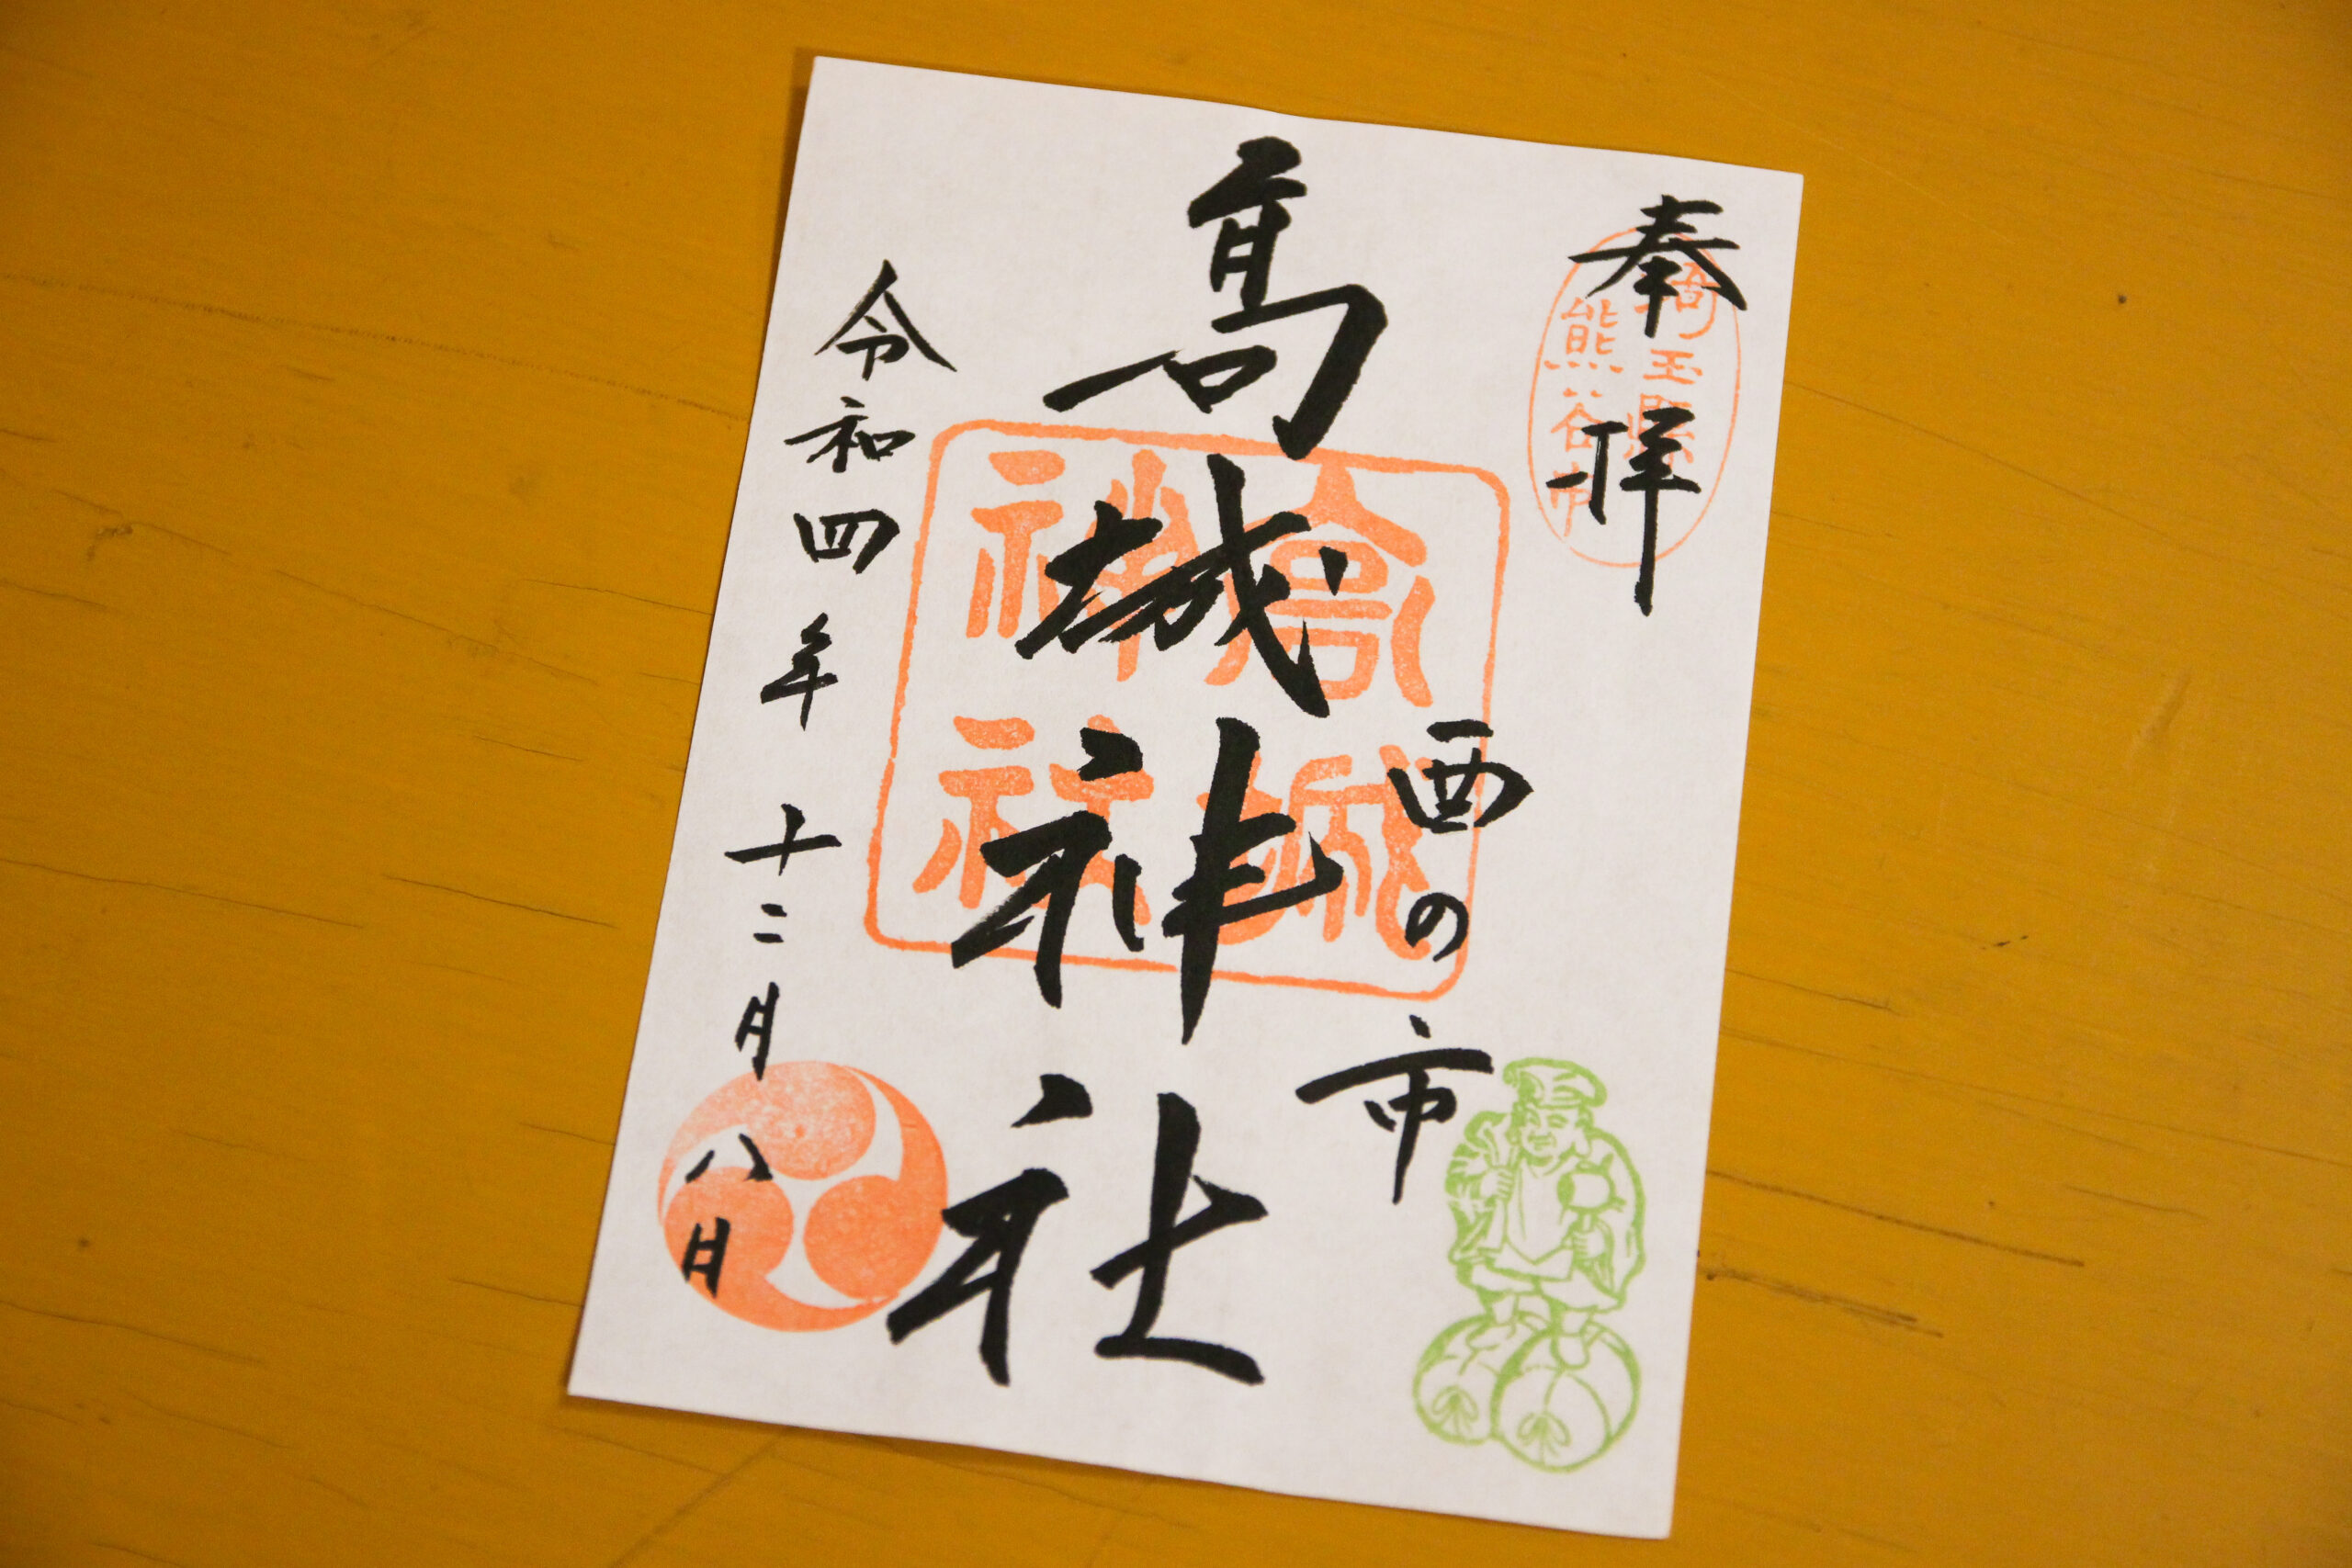 奉拝
埼玉縣
熊谷市
酉の市
高城神社
高城
神社
令和四年十二月八日